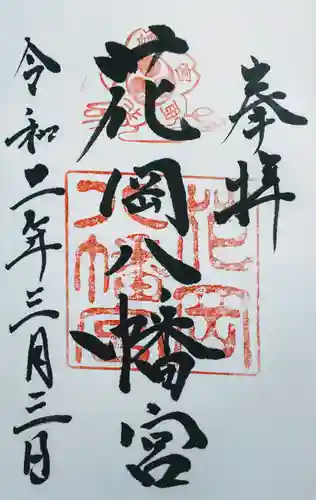 奉拝
花岡八幡宮
令和二年三月三日
花岡
八幡宮